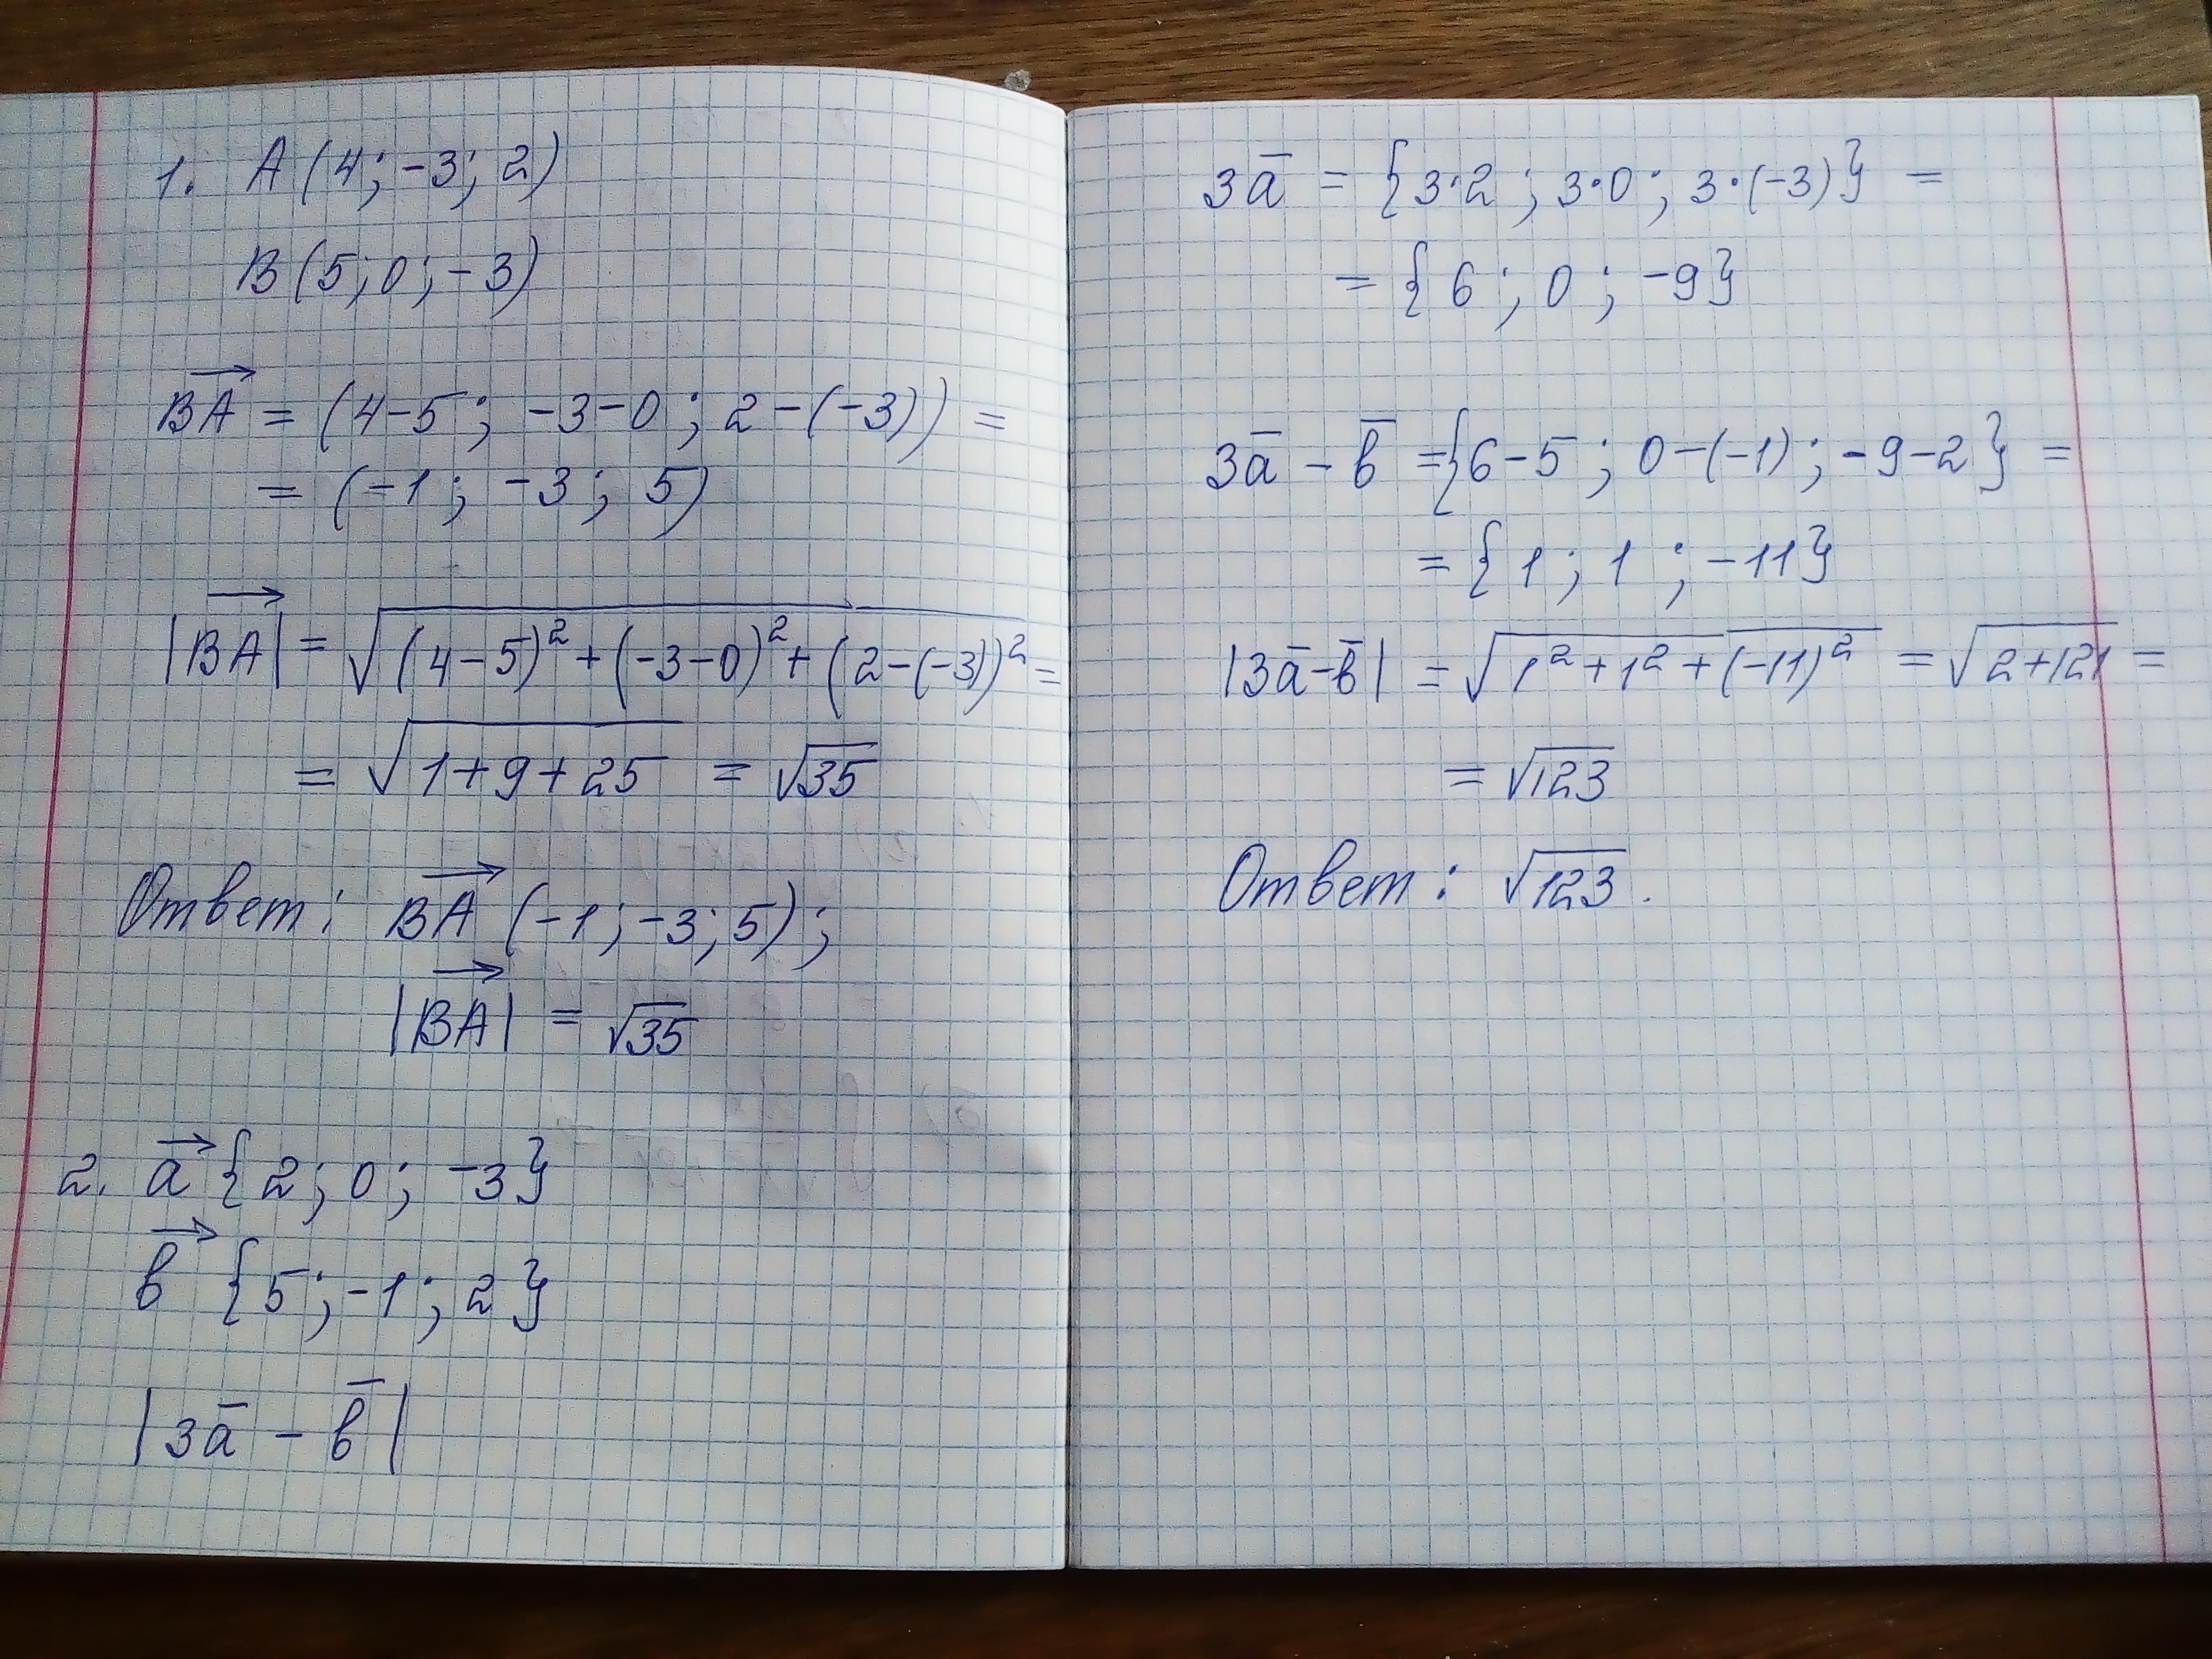 1. A (4; -3; 2)
B (5; 0; -3)
BA = (4-5; -3-0; 2-(-3)) =
= (-1; -3; 5)
|BA| = √(4-5)² + (-3-0)² + (2-(-3))² =
= √1+9+25 = √35
Ответ: BA (-1; -3; 5);
|BA| = √35
2. a {2; 0; -3}
в {5; -1; 2}
|3a - в|
3a = {3·2; 3·0; 3·(-3)} =
= {6; 0; -9}
3a - в = {6-5; 0-(-1); -9-2} =
= {1; 1; -11}
|3a-в| = √1²+1²+(-11)² = √2+121 =
= √123
Ответ: √123.